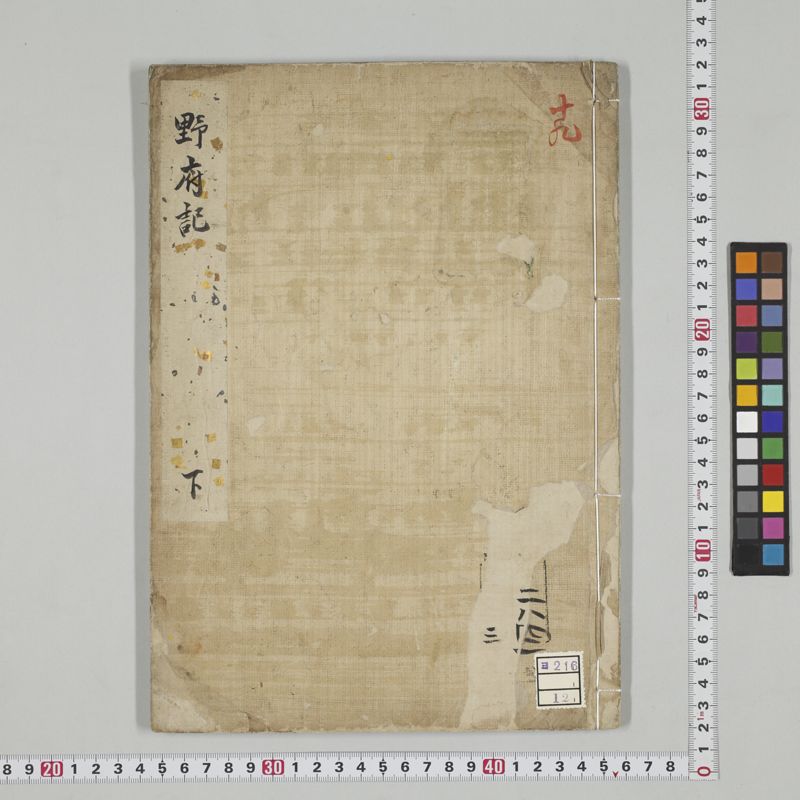 野府記
下
十九
二八四
三
ヨ 216
12
8 9 20 1 2 3 4 5 6 7 8 9 30 1 2 3 4 5 6 7 8 9 40 1 2 3 4 5 6 7 8
4 3 2 1 30 9 8 7 6 5 4 3 2 1 20 9 8 7 6 5 4 3 2 1 10 9 8 7 6 5 4 3 2 1 0